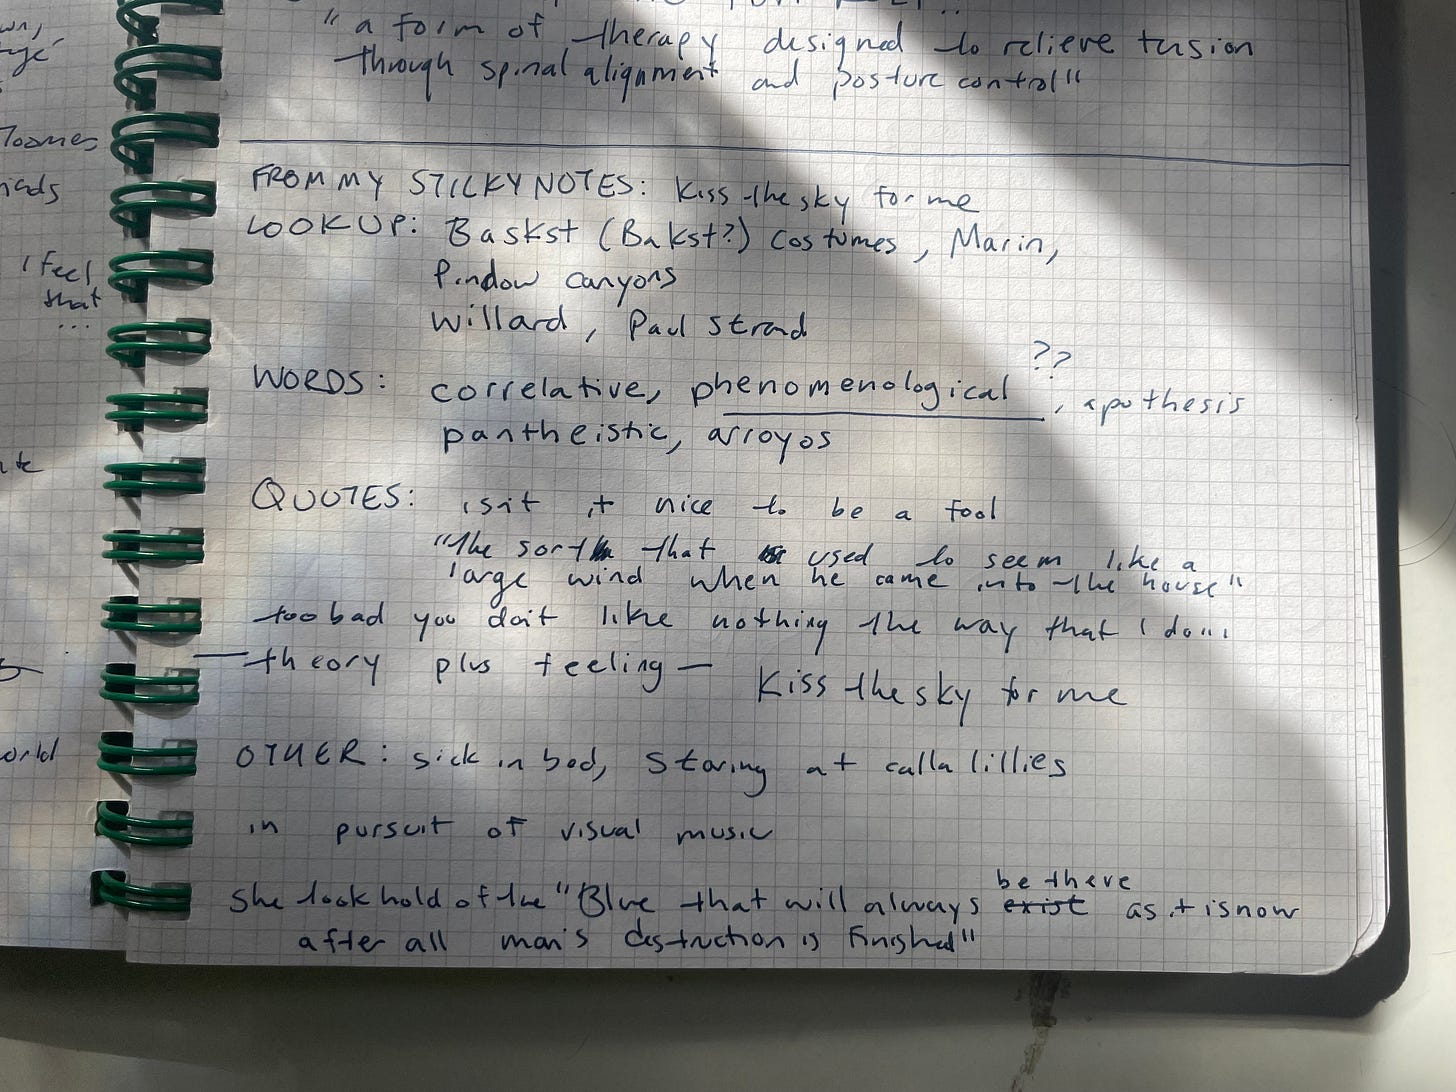 wn,
Toomes
I feel,
that
...
orld
"a form of therapy designed to relieve tension
through spinal alignment and posture control"
FROM MY STICKY NOTES: Kiss the sky for me
LOOK UP: Baskst (Bakst?) costumes, Marin,
canyons
Willard, Paul Strand
??
WORDS: correlative, phenomenological, apothesis
pantheistic, arroyos
QUOTES: isn't it nice to be a fool
"the sort that used to seem like a
large wind when he came into the house"
too bad you don't like nothing the way that I do...
— theory plus feeling — Kiss the sky for me
OTHER: sick in bed, staring at calla lillies
in pursuit of visual music
be there
She took hold of the "Blue that will always exist as it is now
after all man's destruction is finished"